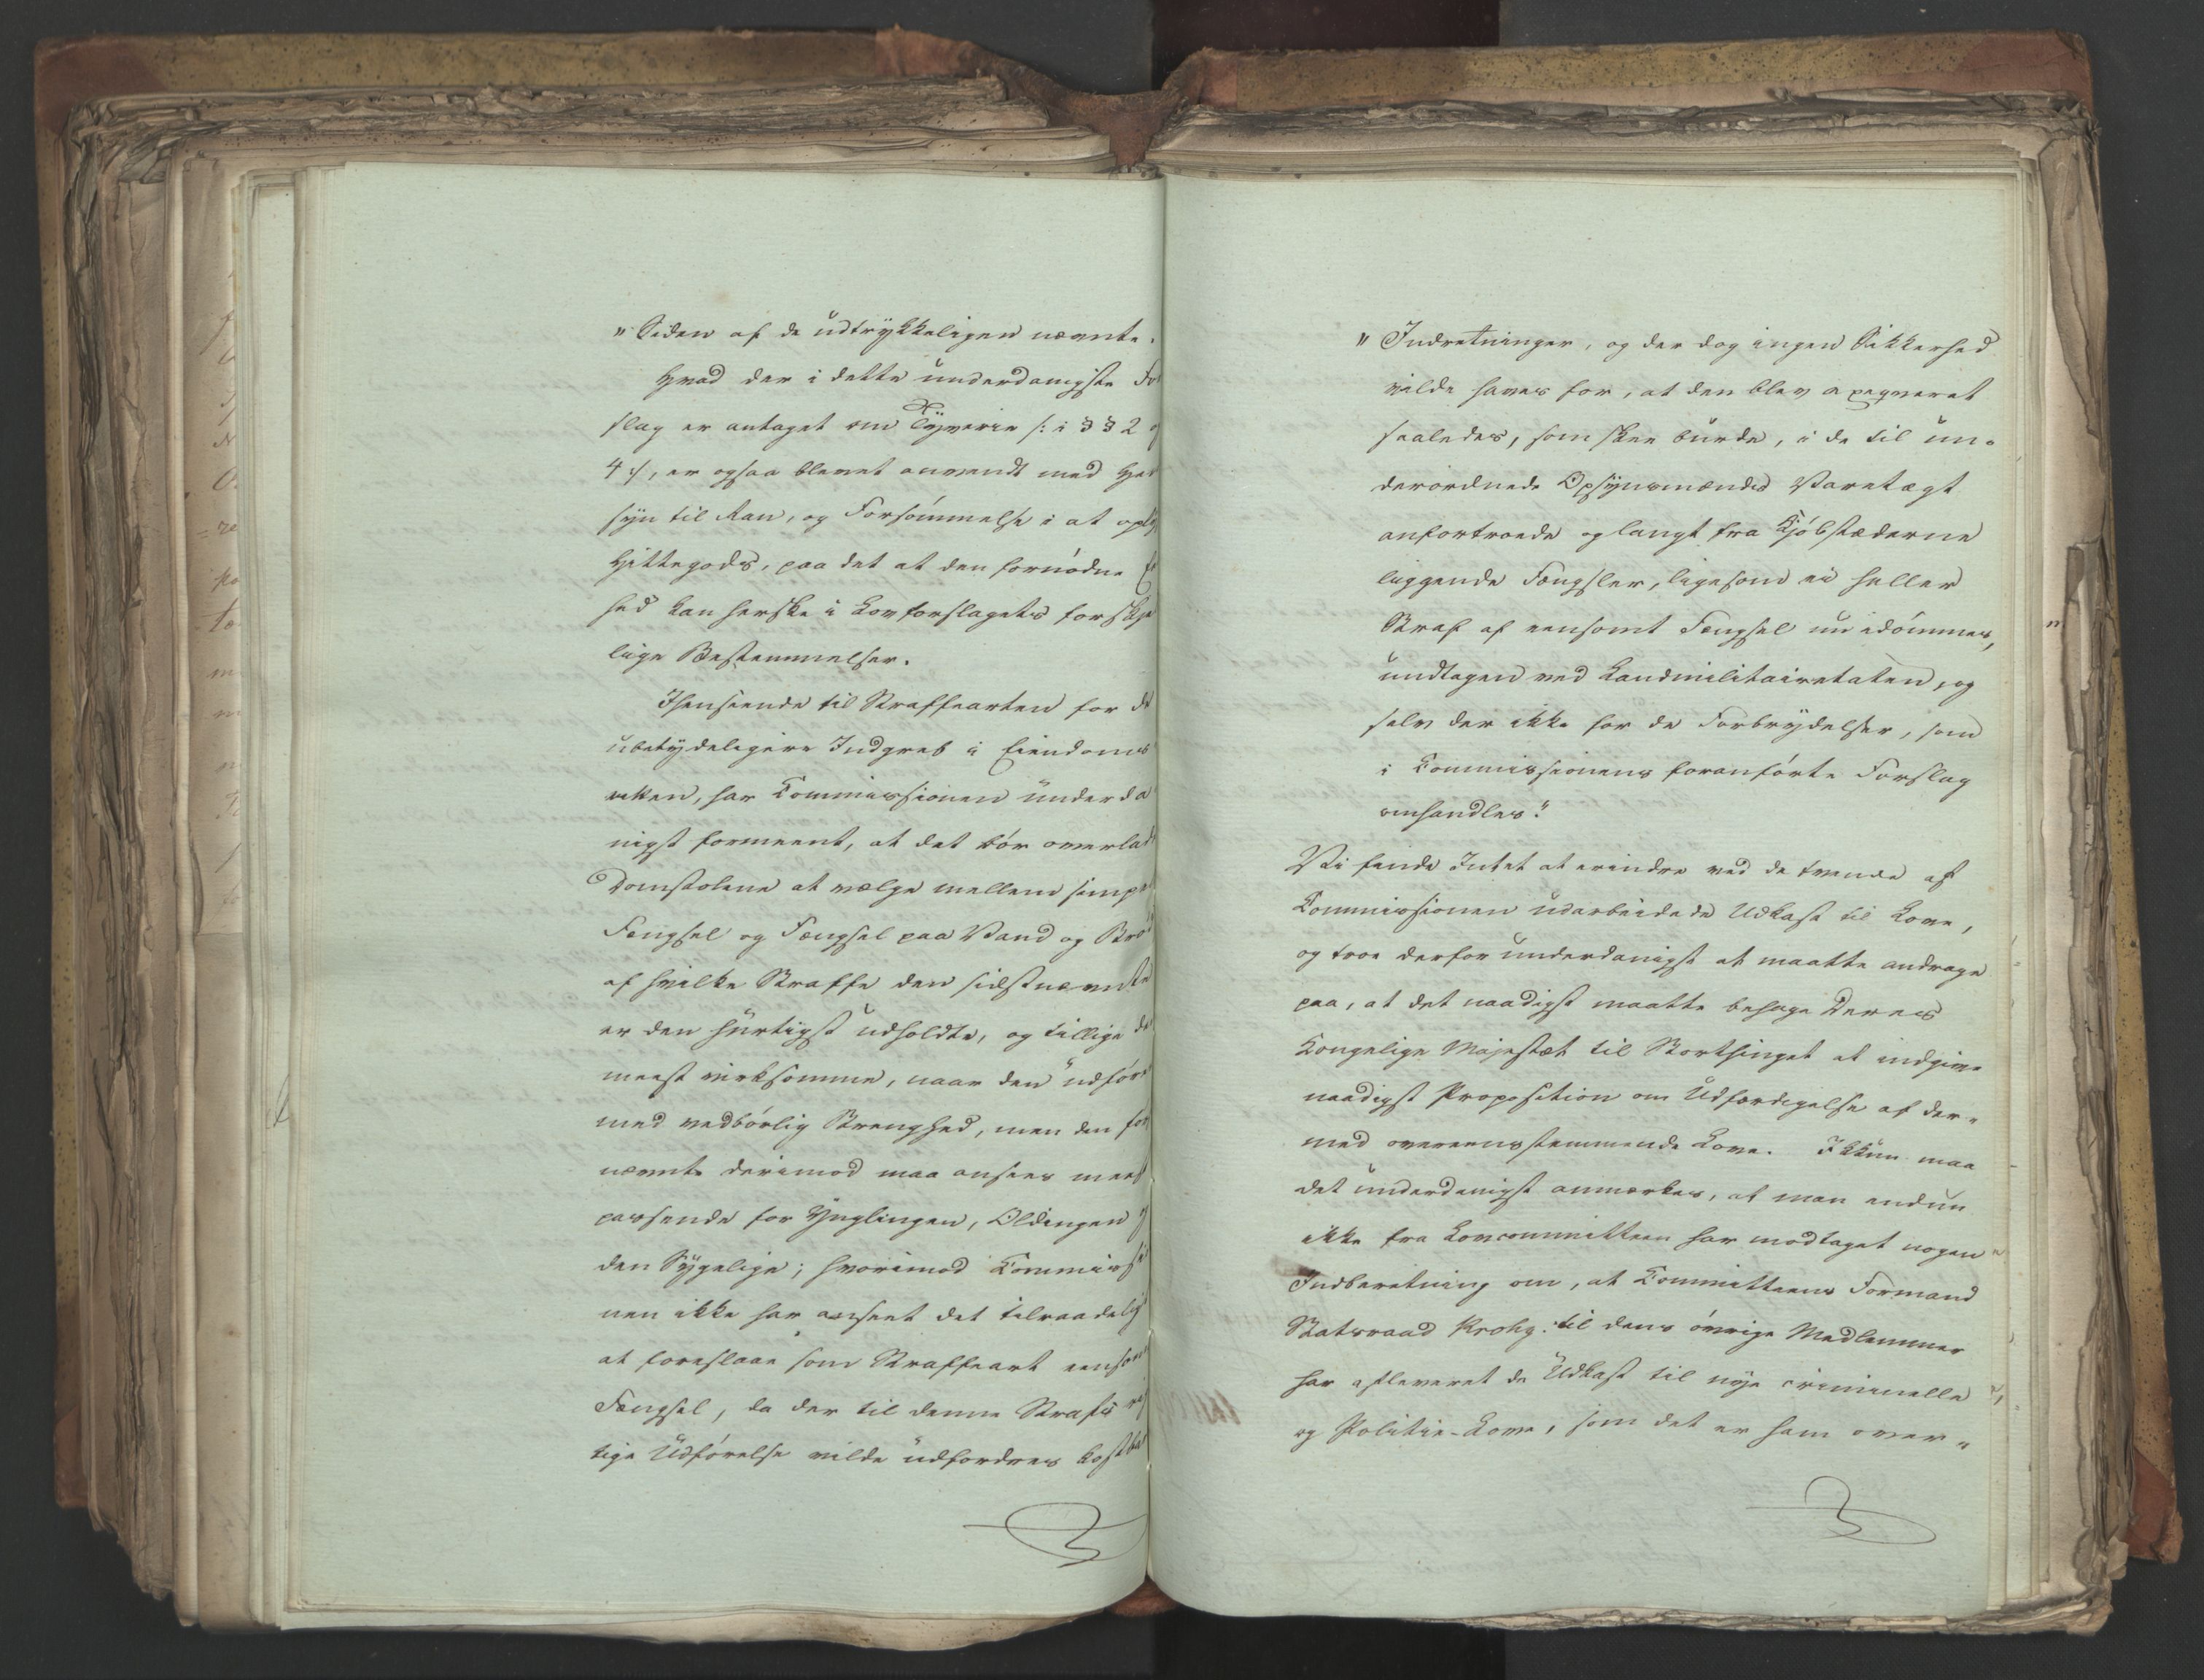 "Siden af de udtrykkeligen nævnte.
Hvad der i dette underdanigste For
slag er antaget om Tyverie /: i §§ 2 o
4 :/, er ogsaa blevet anvendt med Hen
syn til Ran, og Forsömmelse i at oply
Hittegods, paa det at den fornødne Ee
hed kan herske i Lovforslagets forskje
lige Bestemmelser.
Ihenseende til Straffearten for de
ubetydeligere Indgreb i Eiendoms
retten, har Commissionen underda
nigst formeent, at det bør overlade
Domstolene at vælge mellem simpe
Fængsel og Fængsel paa Vand og Brö
af hvilke Straffe den sidstnævnte
er den hurtigst udholdte, og tillige de
meest virksomme, naar den udføre
med vedbörlig Strenghed, men den før
nævnte derimod maa ansees meest
passende for Ynglingen, Oldingen og
den Sygelige; hvorimod Commissio
nen ikke har anseet det tilraadelig
at foreslaae som Straffeart eensom
Fængsel, da der til denne Strafs rig
tige Udførelse vilde udfordres kostba
" Indretninger, og der dog ingen Sikkerhed
vilde haves for, at den blev exeqveret
saaledes, som skee burde, i de til un-
derordnede Opsynsmænds Varetægt
anfortroede og langt fra Kjöbstæderne
liggende Fængsler, ligesom ei heller
Straf af eensomt Fængsel nu idömmes,
undtagen ved Landmilitairetaten, og
selv der ikke for de Forbrydelser, som
i Commissionens foranførte Forslag
omhandles."
Vi finde Intet at erindre ved de tvende af
Commissionen udarbeidede Udkast til Love,
og troe derfor underdanigst at maatte andrage
paa, at det naadigst maatte behage Deres
Kongelige Majestæt til Storthinget at indgive
naadigst Proposition om Udfærdigelse af der-
med overeensstemmende Love. Ikkun maa
det underdanigst anmærkes, at man endnu
ikke fra Lovcommitteen har modtaget nogen
Indberetning om, at Committeens Formand
Statsraad Krohg: til dens övrige Medlemmer
har afleveret de Udkast til nye criminelle
og Politie-Love, som det er ham over-